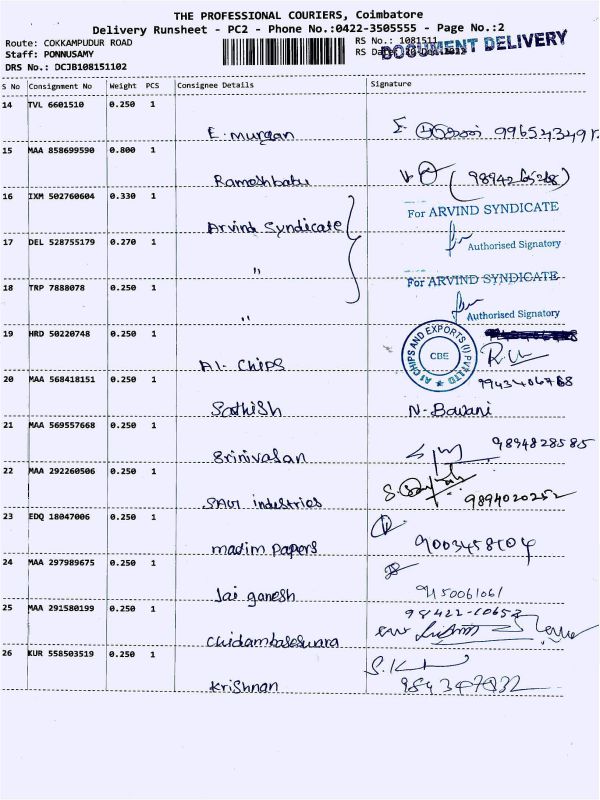 THE PROFESSIONAL COURIERS, Coimbatore
Delivery Runsheet - PC2 - Phone No.:0422-3505555 - Page No.:2
Route: COKKAMPUDUR ROAD
RS No.: 1081511
DOCUMENT DELIVERY
Staff: PONNUSAMY
RS Date:
DRS No.: DCJB108151102
S No Consignment No Weight PCS Consignee Details Signature
14 TVL 6601510 0.250 1
E. murgan 9965434912
15 MAA 858699590 0.800 1
Rameshbabu
16 IXM 502760604 0.330 1
Arvind Syndicate For ARVIND SYNDICATE
17 DEL 528755179 0.270 1
" Authorised Signatory
18 TRP 7888078 0.250 1 For ARVIND SYNDICATE
" Authorised Signatory
19 HRD 50220748 0.250 1
A1 CHIPS AND EXPORTS (I) PVT LTD
CBE
A1- Chips
20 MAA 568418151 0.250 1 9943406768
Sathish N- Bavani
21 MAA 569557668 0.250 1
Srinivasan 9894828585
22 MAA 292260506 0.250 1
SAVI industries 9894020252
23 EDQ 18047006 0.250 1
madim papers 9003458104
24 MAA 297989675 0.250 1
Jai ganesh 9150061061
25 MAA 291580199 0.250 1 98422-10653
Chidambaseswara
26 KUR 558503519 0.250 1
Krishnan